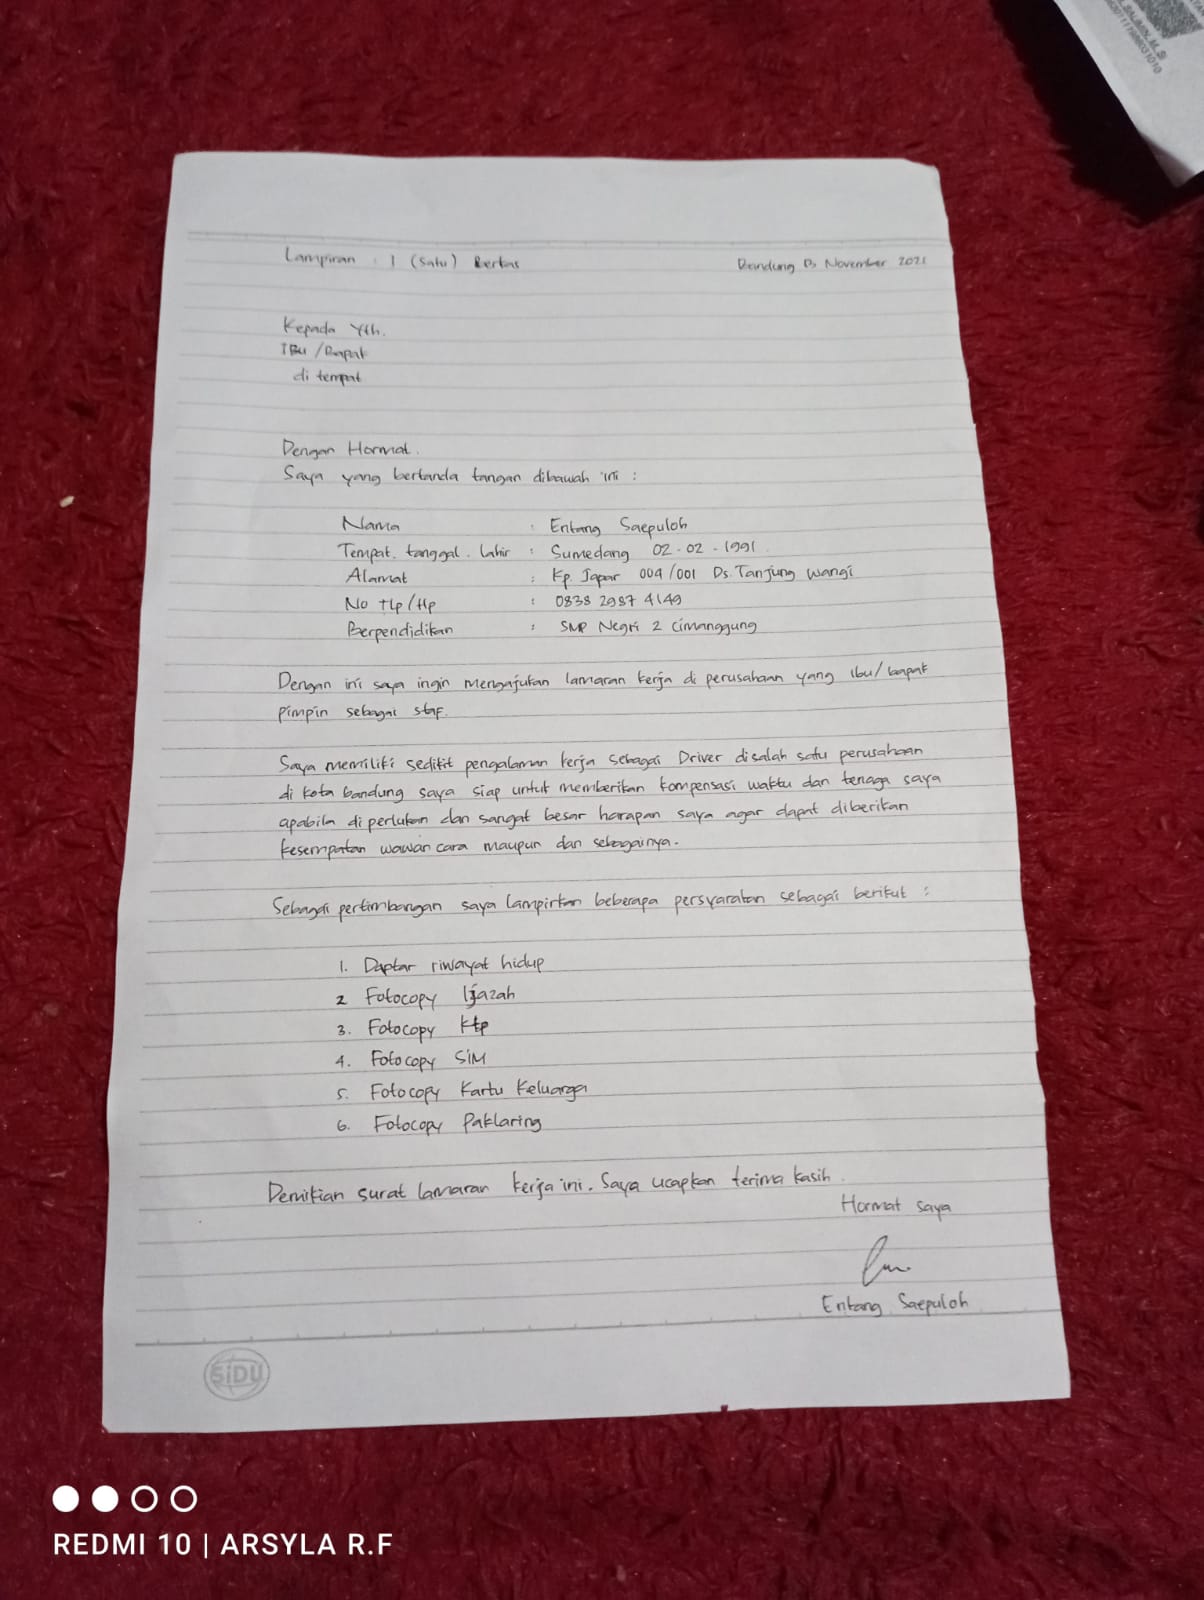 Lampiran : 1 (Satu) Berkas
Bandung 13 November 2021
Kepada Yth.
IBu /Bapak
di tempat
Dengan Hormat.
Saya yang bertanda tangan dibawah ini :
Nama : Entang Saepuloh
Tempat. tanggal. lahir : Sumedang 02-02-1991
Alamat : Kp. Japar 004/001 Ds. Tanjung Wangi
No tlp/Hp : 0838 2987 4149
Berpendidikan : SMP Negri 2 Cimanggung
Dengan ini saya ingin mengajukan lamaran kerja di perusahaan yang ibu/bapak
pimpin sebagai staf.
Saya memiliki sedikit pengalaman kerja sebagai Driver disalah satu perusahaan
di kota bandung saya siap untuk memberikan kompensasi waktu dan tenaga saya
apabila di perlukan dan sangat besar harapan saya agar dapat diberikan
kesempatan wawan cara maupun dan sebagainya.
Sebagai pertimbangan saya lampirkan beberapa persyaratan sebagai berikut :
1. Daptar riwayat hidup
2 Fotocopy Ijazah
3. Fotocopy Ktp
4. Fotocopy SIM
5. Fotocopy Kartu Keluarga
6. Fotocopy Paklaring
Demikian surat lamaran kerja ini. Saya ucapkan terima kasih.
Hormat saya
Entang Saepuloh
SiDU
REDMI 10 | ARSYLA R.F